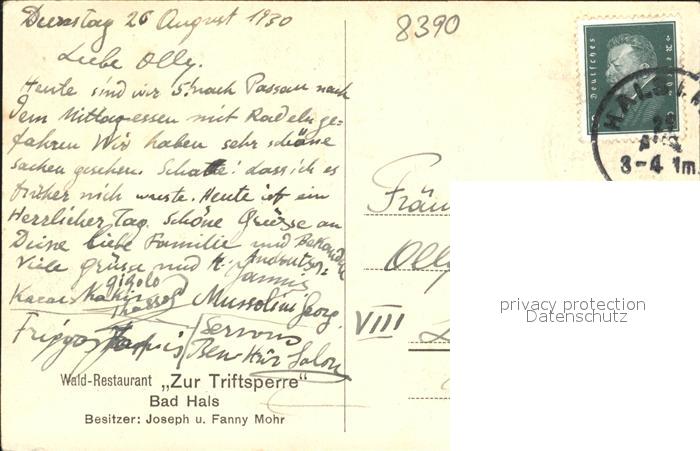 Dienstag 26 August 1930
8390
Liebe Olly.
Heute sind wir 5! nach Passau nach
dem Mittagessen mit Radeln ge=
fahren Wir haben sehr schöne
sachen gesehen. Schade! dass ich es
früher nich wuste. Heute ist ein
Herrlicher Tag. Schöne Grüsse an
Deine liebe Familie und Bekannten
Viele grüsse und
Jannis
Gigolo
Mussolini Georg.
Servus
Ben Hur Salon
Wald-Restaurant „Zur Triftsperre"
Bad Hals
Besitzer: Joseph u. Fanny Mohr
Deutsches
HALS
26
AUG
3-4 Nm.
Fräu
Olly
VIII
privacy protection
Datenschutz